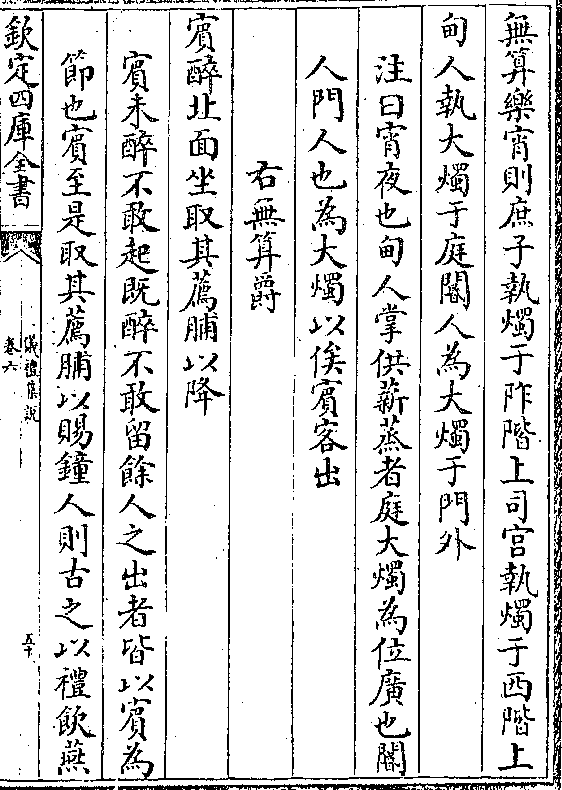 無算樂宵則庶子執燭于阼階上司宮執燭于西階上
甸人執大燭于庭閽人為大燭于門外
注曰宵夜也甸人掌供薪蒸者庭大燭為位廣也閽
人門人也為大燭以俟賓客出
右無算爵
賓醉北面坐取其薦脯以降
賓未醉不敢起既醉不敢留餘人之出者皆以賓為
節也賓至是取其薦脯以賜鐘人則古之以禮飲燕
欽定四庫全書
儀禮集説
卷六
五十